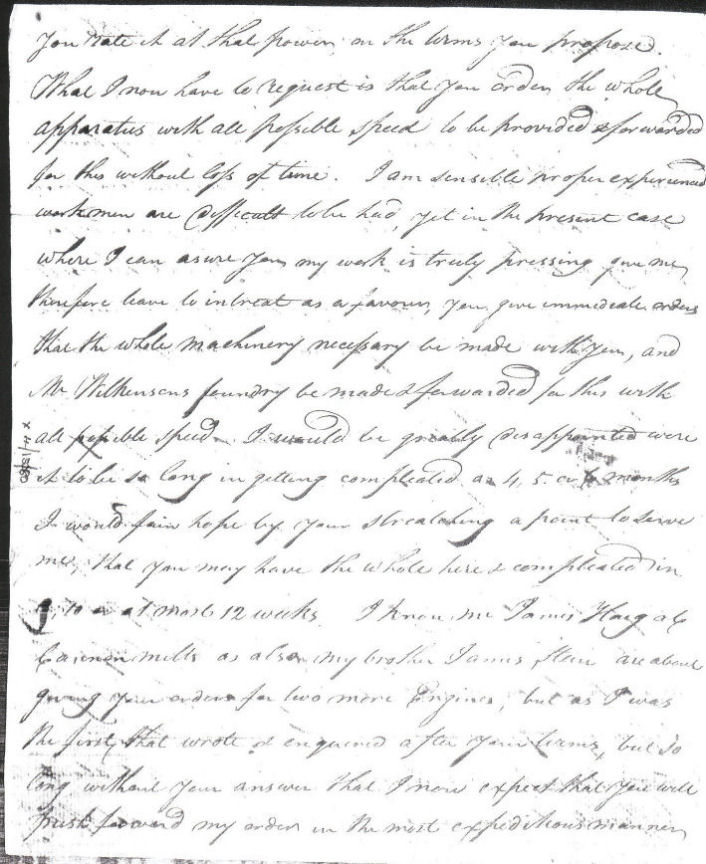 You rate it at that power, on the terms you propose.
What I now have to request is that you order the whole
apparatus with all possible speed to be provided & forwarded
for this without loss of time. I am sensible proper experienced
workmen are difficult to be had, yet in the present case
where I can asure you my work is truly pressing give me,
therefore leave to intreat as a favour, you give immediate orders
that the whole machinery necessary be made with you, and
Mr Wilkensons foundry be made & forwarded for this with
all possible speed. I would be greatly disappointed were
it to be so long in getting compleated as 4, 5. or 6 months
I would fain hope by your streatching a point to serve
me, that you may have the whole here & compleated in
10 or at most 12 weeks. I know Mr James Haig at
Cannonmills as also my brother James Stein are about
giving your orders for two more Engines, but as I was
the first that wrote & enquered after your terms, but so
long without your answer that I now expect that you will
push forward my orders in the most expeditious manner,
X H/13/80